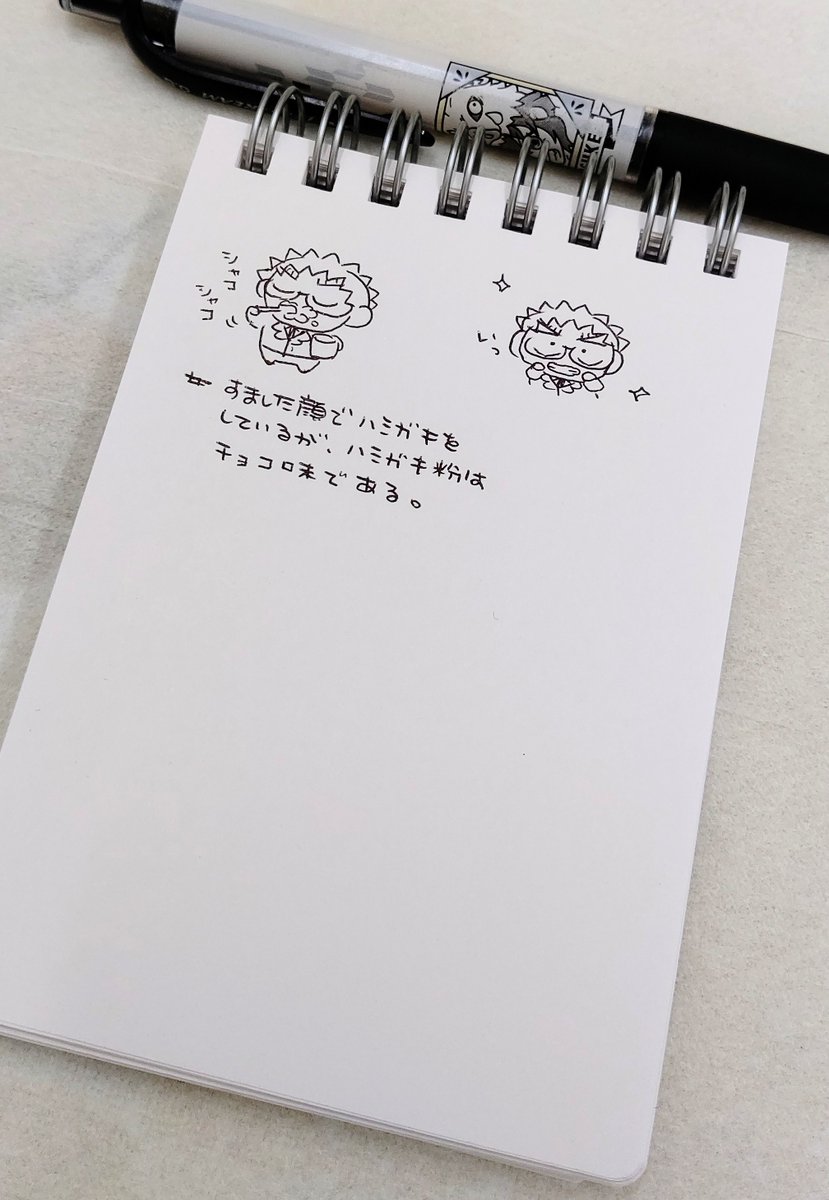 シャコ
シャコ
いっ
すました顔でハミガキを
しているが、ハミガキ粉は
チョコロ味である。